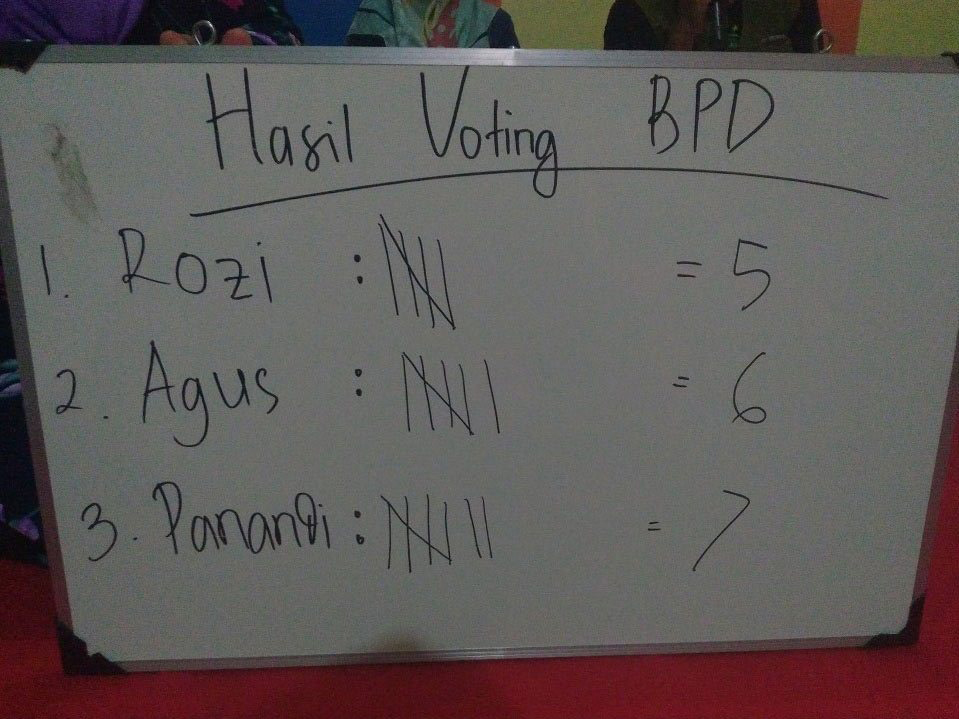 Hasil Voting BPD
1. Rozi : = 5
2. Agus : = 6
3. Panandi : = 7